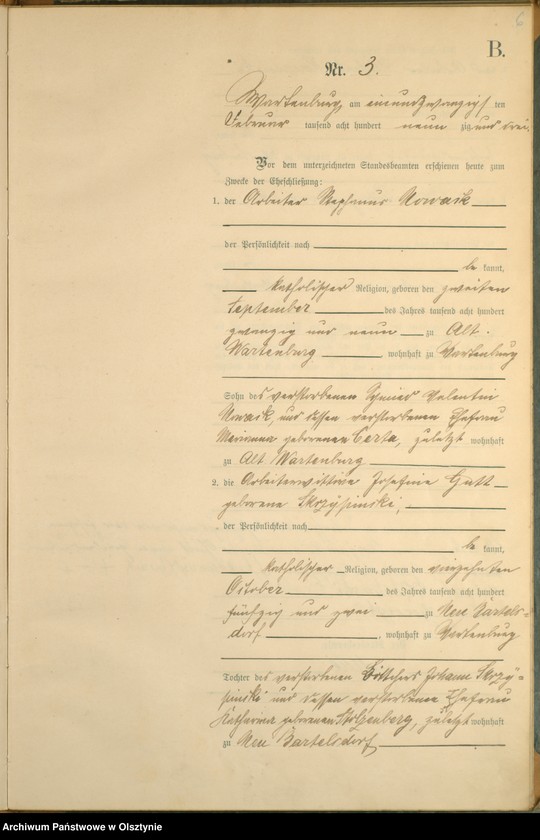 6
B.
Nr. 3.
Wartenburg, am einundzwanzigsten
Februar tausend acht hundert neunzig und drei.
Vor dem unterzeichneten Standesbeamten erschienen heute zum
Zwecke der Eheschließung:
1. der Arbeiter Stephanus Nowack
der Persönlichkeit nach
be kannt,
katholischer Religion, geboren den zweiten
September des Jahres tausend acht hundert
zwanzig und neun zu Alt-
Wartenburg, wohnhaft zu Wartenburg
Sohn des verstorbenen Valentin
Nowack, und dessen verstorbenen Ehefrau
Marianna geborenen Certa, zuletzt wohnhaft
zu Alt Wartenburg
2. die Arbeiterwittwe Josefine Gutt
geborene Skrzypinski,
der Persönlichkeit nach
be kannt,
katholischer Religion, geboren den vierzehnten
October des Jahres tausend acht hundert
fünfzig und zwei zu Neu Bartels-
dorf, wohnhaft zu Wartenburg
Tochter des verstorbenen Böttchers Johann Skrzy-
pinski und dessen verstorbenen Ehefrau
Katharina geborenen Stolzenberg, zuletzt wohnhaft
zu Neu Bartelsdorf
Archiwum Państwowe w Olsztynie